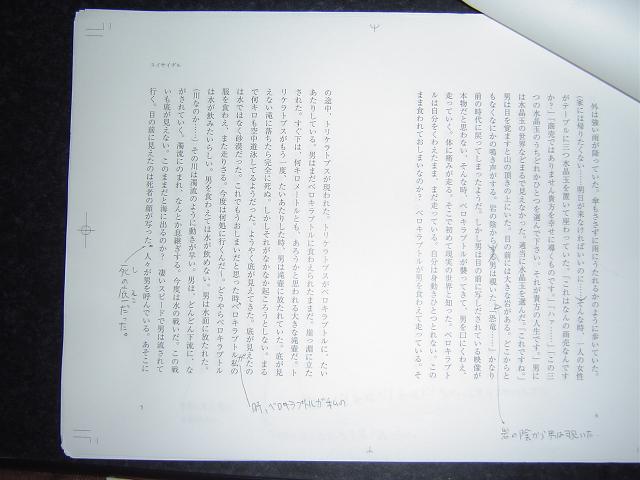 外は強い雨が降っていた。傘もささずに雨にうたれるかのように歩いていた。
(家には帰りたくない…明日が来なければいいのに…)そんな時、一人の女性
がテーブルに三つ水晶玉を置いて座わっていた。「これはなんの商売なんです
か?」「商売ではありません貴方を幸せに導くものです。」「ハァ……」「この三
つの水晶玉のうちどれかひとつを選んで下さい。それが貴方の人生です。」男に
は水晶玉の世界などまるで見えなかった。適当に水晶玉を選んだ。「これですね。」
男は目を覚ますと山の頂きの上にいた。目の前には大きな岩がある。どこからと
もなくなにかの鳴き声がする。岩の陰からする男は覗いた。恐竜……!かなり
前の時代に戻ってしまったようだ。しかし男は目の前に写しだされている映像が
本物だと思わない。そんな時、ベロキラプトルが襲ってきて、男を口にくわえ、
走っていく。体に痛みが走る。そこで初めて現実の世界と知った。ベロキラプト
ルは自分をくわえたまま、まだ走っている。自分は身動きひとつとれない。この
まま食われておしまいなのか? ベロキラプトルが男を食わえて走っている。そ
6
岩の陰から男は覗いた
スイサイダル
の途中、トリケラトプスが現われた。トリケラトプスがベロキラプトルに、たい
あたりしている。男はまだベロキラプトルに食わえられたままだ。崖っ淵に立た
された。すぐ下は、何キロメートルとも、あろうかと思われる大きな滝壺だ。ト
リケラトプスがもう一度、たいあたりした時、男は滝壺に放たれていた。底が見
えない滝に落ちたら完全に死ぬ。しかしそれがなかなか起ころうとしない。まる
で何キロも空中遊泳してるようだった。ようやく底が見えてきた。底が見えたの
は水ではなく砂漠だった。これでもうおしまいだと思った時ベロキラプトル私の
服を食わえ、また走りさる。今度は何処に行くんだ!どうやらベロキラプトル
は水が飲みたいらしい。男を食わえては水が飲めない。男は水面に放たれた。
(川なのか……)その川は濁流のように動きが早い。男は、どんどん下流に、な
がされていく。濁流にのまれ、なんとか息継ぎする。今度は水の戦いだ。この戦
いも底が見えない。このままだと海に出るのか? 凄いスピードで男は流されて
行く。目の前に見えたのは死者の顔が写った。人々が男を呼んでいる。あそこに
7
時、ベロキラプトルが私の
死の底だった。